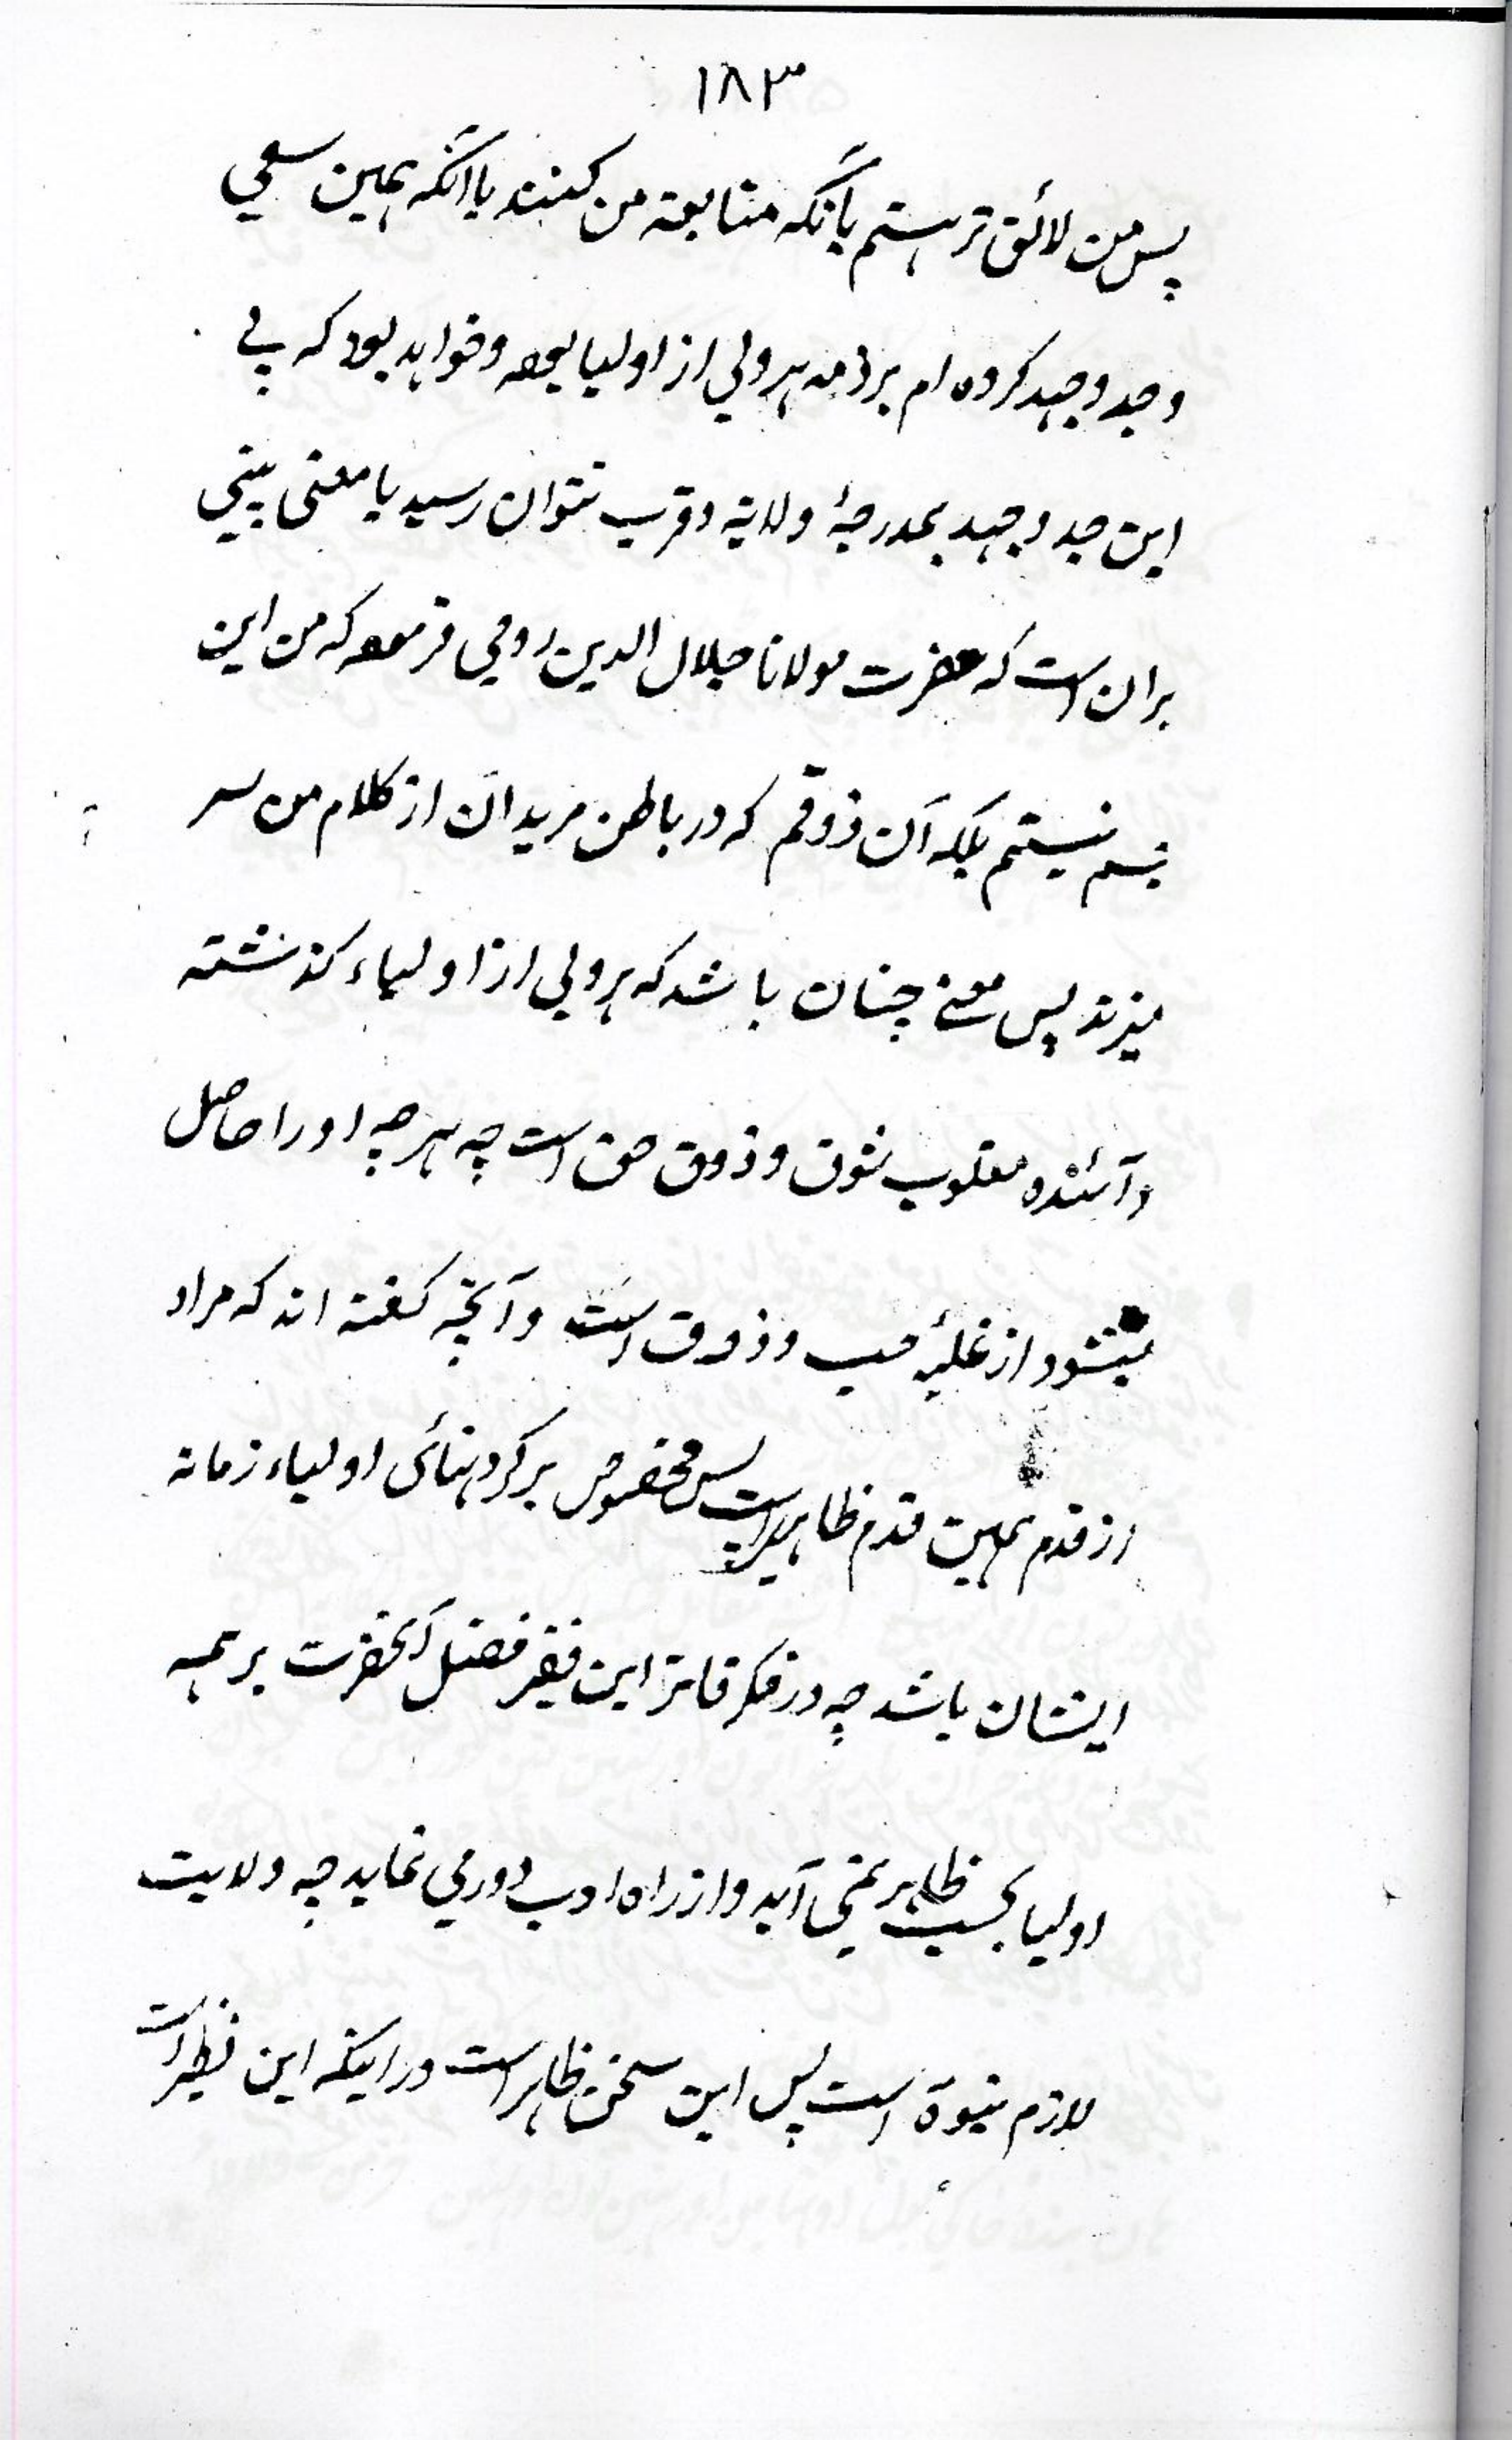 ۱۸۳
پس من لائق تر هستم بآنکه متابعة من کنند یا آنکه همین سعی
و جد و جهد کرده ام بر ذمه هر ولی از اولیا بوده و خواهد بود که بے
این جد و جهد بمدرجۀ ولایة و قرب نتوان رسید یا معنی مبنی
بران است که حضرت مولانا جلال الدین رومی فرموده که من این
جسم نیستم بلکه آن ذوقم که در باطن مریدان از کلام من سر
میزند پس معنے چنان باشد که هر ولی از اولیاء کذشته
و آئنده مغلوب شوق و ذوق حق است چه هر چه او را حاصل
میشود از غلبۀ حب و ذوق است و آنچه کفته اند که مراد
از قدم همین قدم ظاهر است پس مخصوص بر کردنهائی اولیاء زمانه
ایشان باشد چه در فکر فاتر این فقیر فضل آنحضرت بر همه
اولیا بحسب ظاهر نمی آید و از راه ادب دور می نماید چه ولایت
لازم نبوة است پس این سخن ظاهر است در اینکه این نظیر است